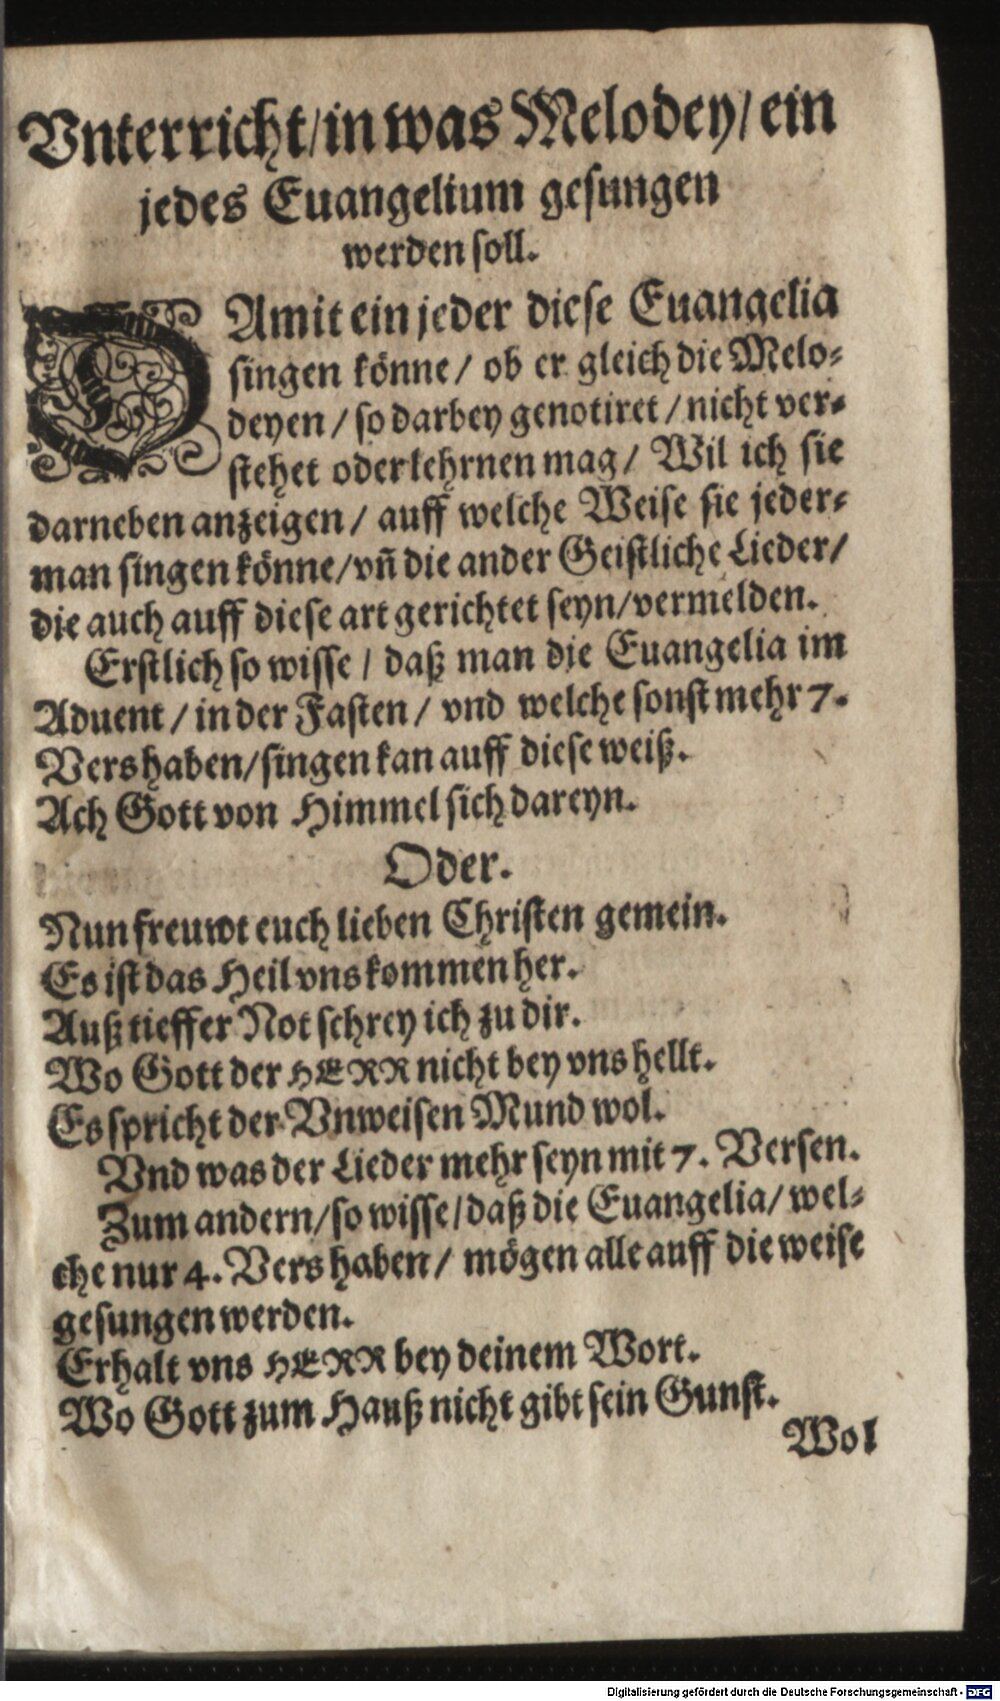 Vnterricht/in was Melodey/ein
jedes Euangelium gesungen
werden soll.
DAmit ein jeder diese Euangelia
singen könne/ ob er gleich die Melo-
deyen/ so darbey genotiret/ nicht ver-
stehet oder lehrnen mag/ Wil ich sie
darneben anzeigen/ auff welche Weise sie jeder-
man singen könne/vñ die ander Geistliche Lieder/
die auch auff diese art gerichtet seyn/vermelden.
Erstlich so wisse/ daß man die Euangelia im
Aduent/ in der Fasten/ vnd welche sonst mehr 7.
Vers haben/singen kan auff diese weiß.
Ach Gott von Himmel sich dareyn.
Oder.
Nun freuwt euch lieben Christen gemein.
Es ist das Heil vns kommen her.
Auß tieffer Not schrey ich zu dir.
Wo Gott der HERR nicht bey vns hellt.
Es spricht der Vnweisen Mund wol.
Vnd was der Lieder mehr seyn mit 7. Versen.
Zum andern/so wisse/daß die Euangelia/ wel-
che nur 4. Vers haben/ mögen alle auff die weise
gesungen werden.
Erhalt vns HERR bey deinem Wort.
Wo Gott zum Hauß nicht gibt sein Gunst.
Wol
Digitalisierung gefördert durch die Deutsche Forschungsgemeinschaft - DFG